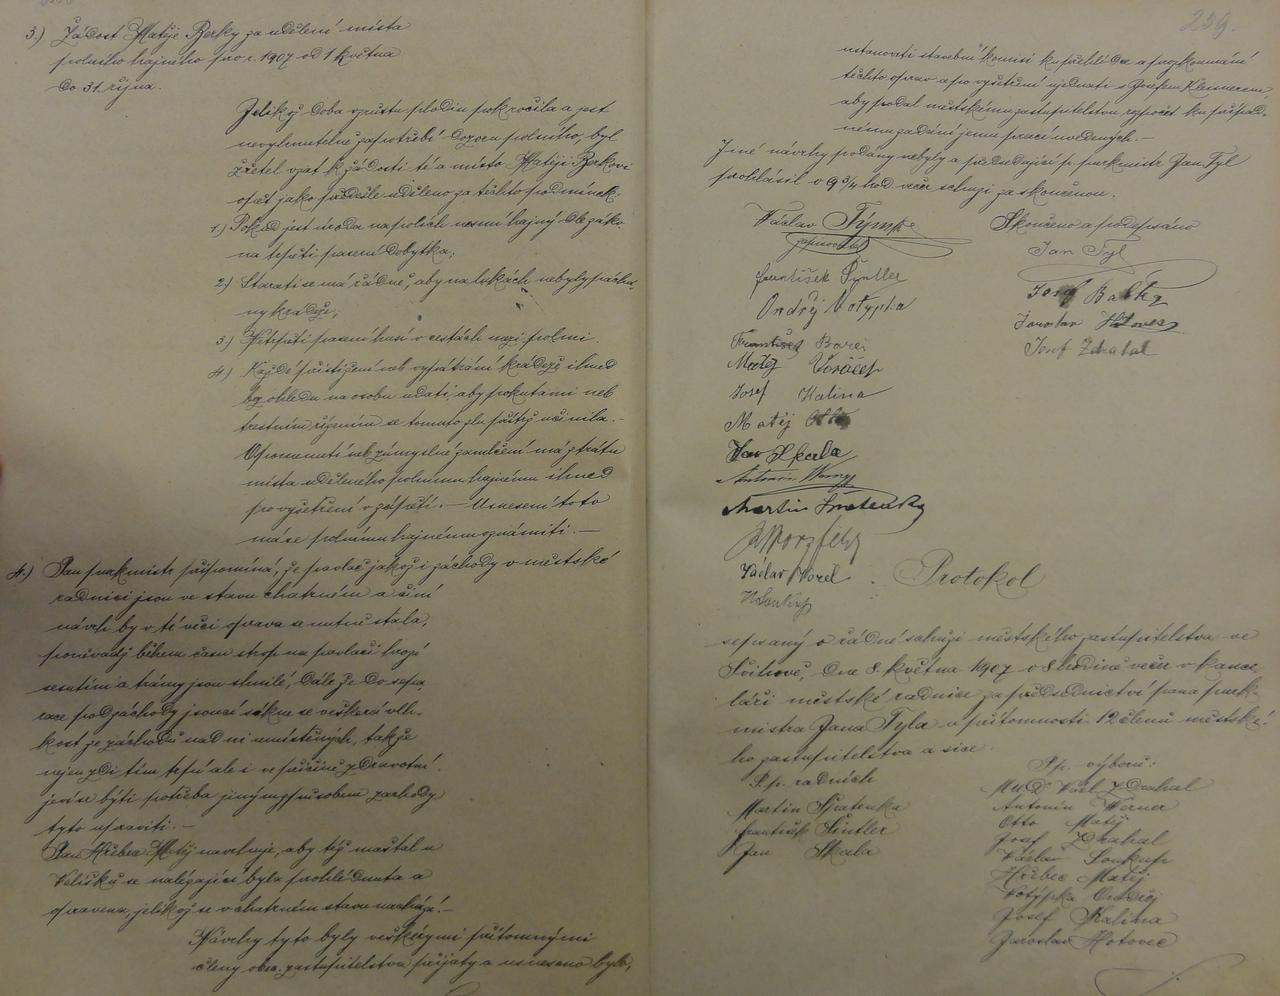 3.) Žádost Matěje Berky za udělení místa
polního hajného pro r. 1907 od 1 května
do 31. října.
Jelikož doba vzrůstu plodin pokročila a jest
nevyhnutelně zapotřebí dozoru polního, byl
zřetel vzat k žádosti té a místo Matěji Berkovi
opět jako předešle uděleno za těchto podmínek:
1.) Pokud jest úroda na polích nesmí hajný dle záko-
na trpěti pasení dobytka;
2.) Starati se má řádně, aby na lukách nebyly pácha-
ny krádeže;
3.) Netrpěti pasení husí v cestách mezi polmi.
4.) Každé přistižení neb vypátrání krádeže ihned
bez ohledu na osobu udati, aby pokutami neb
trestním řízením se tomuto zlu přítrž učinila.-
Opomenutí neb zúmyslné zamlčení má ztrátu
místa uděleného polnímu hajnému ihned
po vyšetření v zápětí. - Usnesení toto
má se polnímu hajnému oznámiti. -
4.) Pan purkmistr připomíná, že pavlač jakož i záchody v městské
radnici jsou ve stavu chatrném a činí
návrh by v té věci oprava se nutně stala,
poněvadž během času strop na pavlači hrozí
sesutím a trámy jsou shnilé, dále že do sepa-
race pod záchody jsoucí sákne se veškerá vlh-
kost ze záchodů nad ní umístěných, takže
nejen zdi tím trpí ale i v příčině zdravotní
jeví se býti potřeba jiným způsobem záchody
tyto upraviti. -
Pan Hřebec Matěj navrhuje, aby též maštal u
Velíšků se nalézající byla prohlédnuta a
opravena, jelikož se v chatrném stavu nachází. -
Návrhy tyto byly veškerými přítomnými
členy obec. zastupitelstva přijaty a usneseno bylo,
259.
ustanoviti stavební komisi ku přehlédce a prozkoumání
těchto oprav a po vyšetření ujednati s Josefem Kleisnerem,
aby podal městskému zastupitelstvu rozpočet ku případ-
nému zadání jemu prací uvedených. -
Jiné návrhy podány nebyly a předsedající p. purkmistr Jan Tyl
prohlásil o 9 3/4 hod. večer schůzi za skončenou.
Skončeno a podepsáno
Václav
zapisovatel
Jan Tyl
František Šintler
Ondřej Votýpka
Josef
Jaroslav Hotovec
Josef Zdrahal
František Bareš
Matěj
Josef Kalina
Matěj Otto
Jan Skala
Antonín
Martin Špatenka
Václav
Protokol
sepsaný o řádné schůzi městského zastupitelstva ve
Švihově, dne 8. května 1907 o 8 hodině večer v kance-
láři městské radnice za předsednictví pana purk-
mistra Jana Tyla u přítomnosti 12 členů městské-
ho zastupitelstva a sice:
P.p. radních
Martin Špatenka
František Šintler
Jan Skala
P.p. výborů:
MUDr Karl Zdrahal
Antonín Werner
Otto Matěj
Josef Zdrahal
Václav Soukup
Hřebec Matěj
Votýpka Ondřej
Josef Kalina
Jaroslav Hotovec